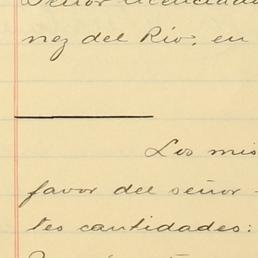 Señor licenciado
nez del Río, en
Los mis
favor del señor
tes cantidades: